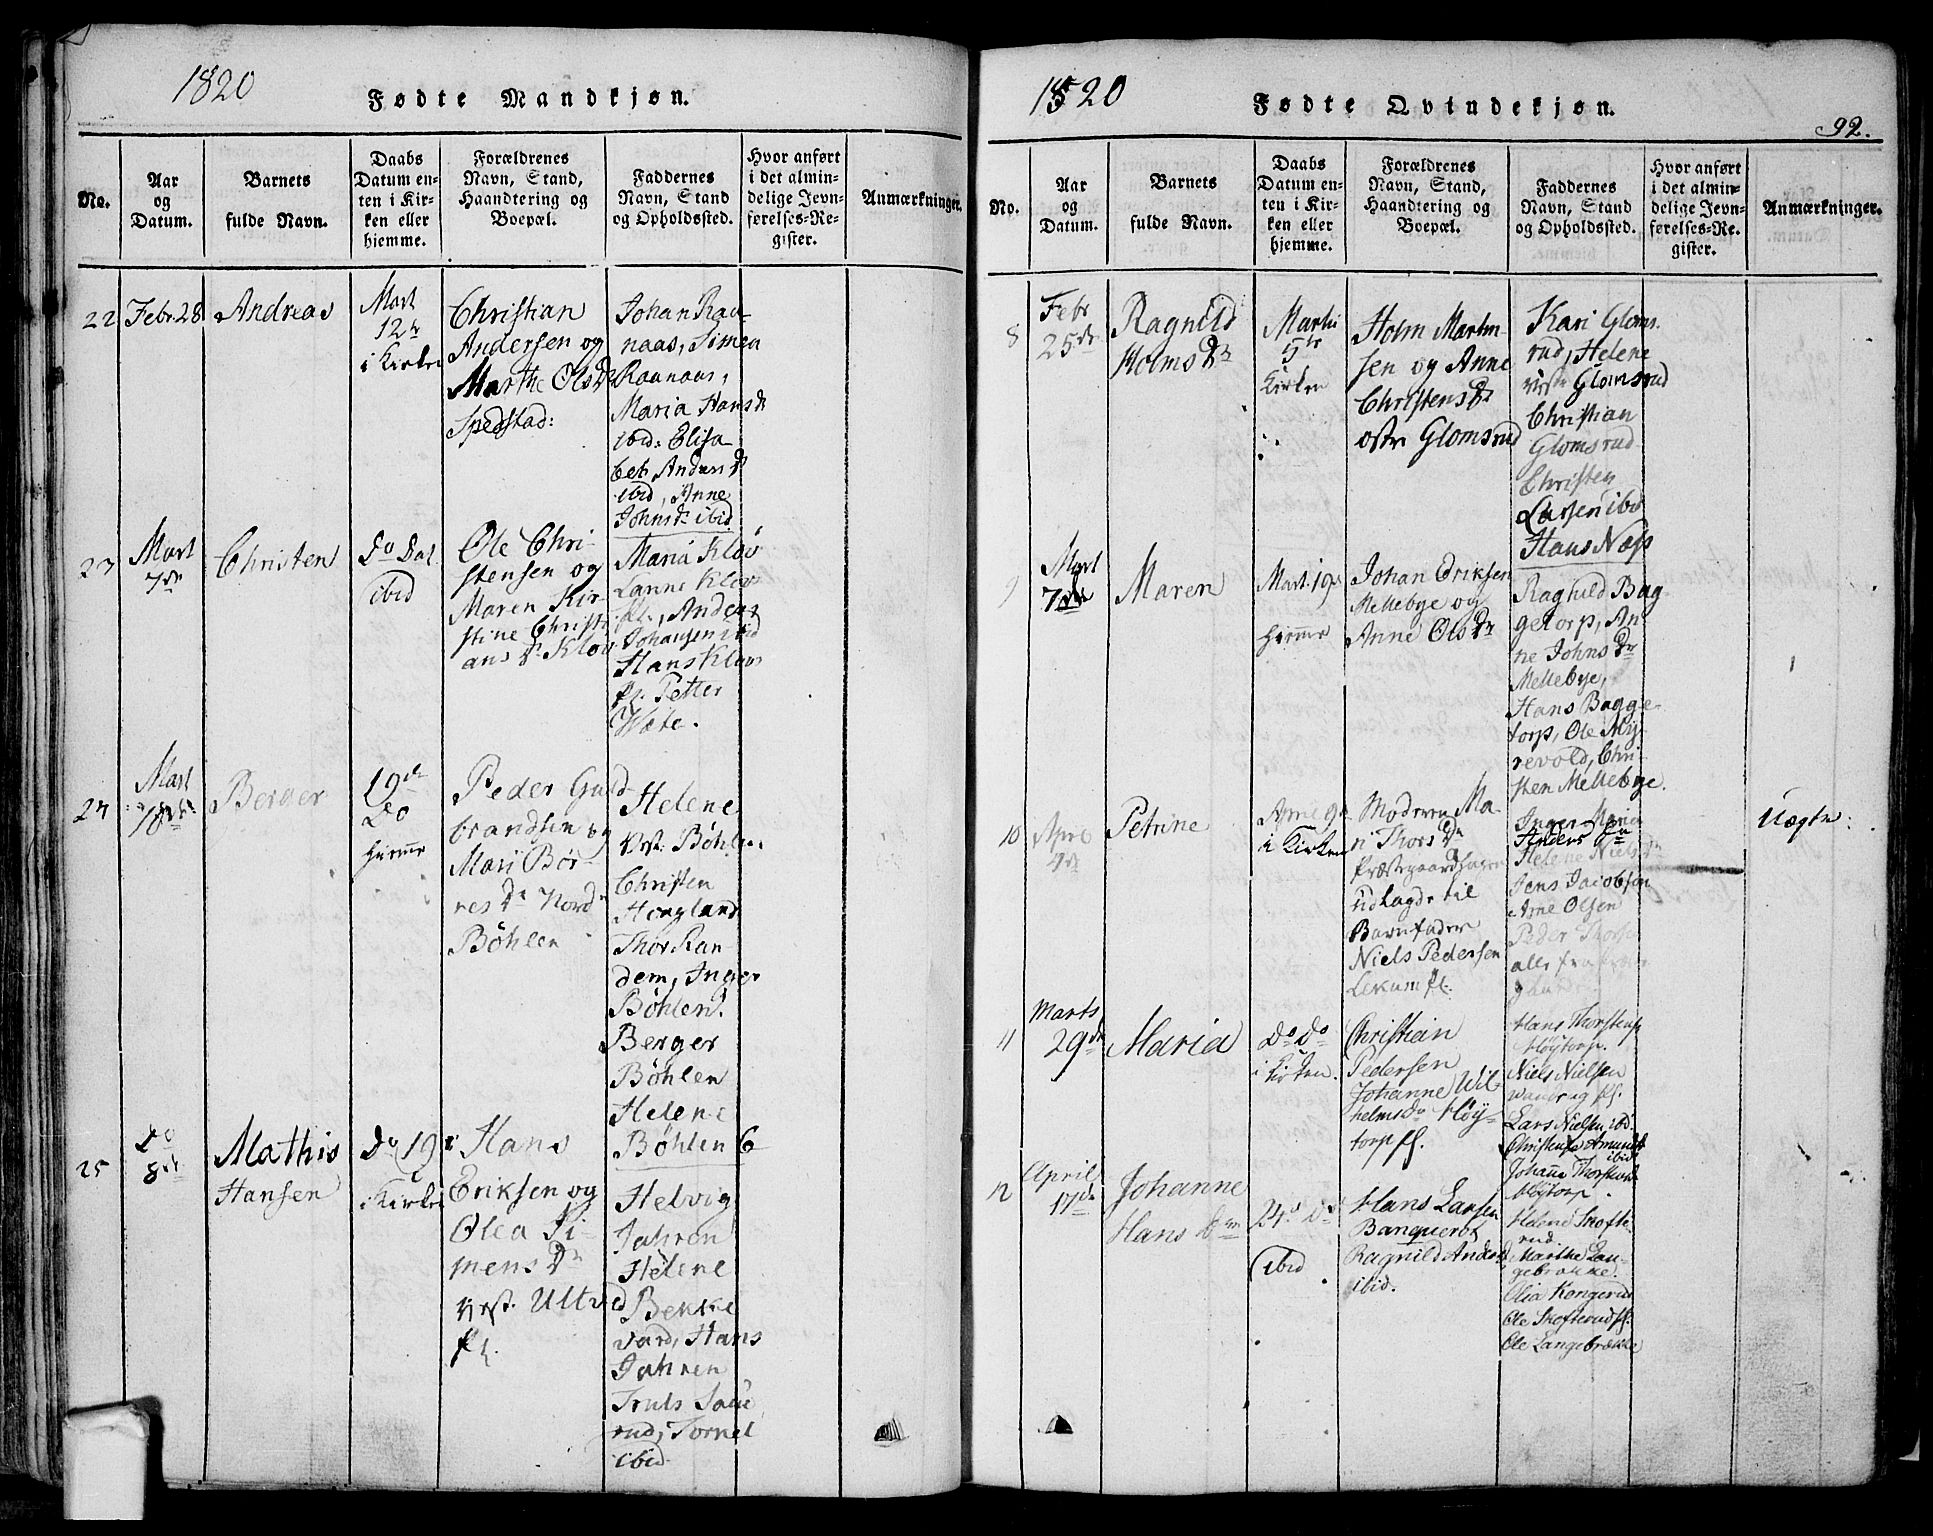 1820
Fødte Mandkjøn.
No.
Aar
og
Datum.
Barnets
fulde Navn.
Daabs
Datum en-
ten i Kir-
ken eller
hjemme.
Forældrenes
Navn, Stand,
Haandtering og
Boepæl.
Faddernes
Navn, Stand
og Opholdssted.
Hvor anført
i det almin-
delige Jevn-
førelses-Re-
gister.
Anmærkninger.
22
Febr. 28
Andreas
Mart
12te
i Kirke
Christian
Andersen og
Marthe Olsdr
Spedstad:
Johan Rau-
naas, Simen
Raanaas,
Maria Hansdr
ibid: Elisa
bet Andersdr
ibid, Anne
Johnsdr ibid
23
Mart
7de
Christen
Do Dat
ibid
Ole Chri-
stensen og
Maren Kir-
stine Christi
ansdr Klov
Maria Kløv
Hans Klov
pl. Petter
Wæte.
24
Mart
18de
Berger
19de
Do
hiemme
Peder Guld
brandsen og
Mari Bør-
nesdr Nord
Böhlen
Helene
Vest. Böhlen
Christen
Hougland
Thor Ran-
dem, Inger
Böhlen.
Berger
Böhlen
Helene
Böhlen
6
25
Do
8de
Mathis
Hansen
Do 19
i Kirke
Hans
Eriksen og
Olea Si-
mensdr
vest. Ultved
pl.
Helvig
Jahren
Helene
Bekke
vard, Hans
Jahren
Truls Sau
rud, Tornel
ibid
1820
Fødte Qvindekjøn.
92.
No.
Aar
og
Datum.
Barnets
fulde Navn.
Daabs
Datum en-
ten i Kir-
ken eller
hjemme.
Forældrenes
Navn, Stand,
Haandtering og
Boepæl.
Faddernes
Navn, Stand
og Opholdssted.
Hvor anført
i det almin-
delige Jevn-
førelses-Re-
gister.
Anmærkninger.
8
Febr
25de
Ragnild
Holmsdr
Martii
5te
Kirken
Holm Martin
sen og Anne
Christensdr
østre Glomsrud
Kari Gloms-
rud, Helene
vestr Glomsrud
Christian
Glomsrud
Christen
Larsen ibid
Hans Næss
9
Mart
7de
Maren
Mart. 19
hiemme
Johan Eriksen
Mellebye og
Anne Olsdr
Ragnild Bag-
getorp, An
ne Johnsdr
Mellebye,
Hans Bagge-
torp, Ole Ny-
revold, Chri-
sten Mellebye.
10
Petrine
i Kirken
Moderen Ma-
ri Thorsdr
Præstegaardshagen
udlagde til
Barnefader
Niels Pedersen
Lekum pl.
Inger Maria
Andersdr
Helene Nielsdr
Jens Jacobsen
Arne Olsen
Peder Thorsen
alle fra
Uægte:
11
Marts
29de
Maria
Do Do
i Kirken.
Christian
Pedersen
Johanne Wil-
helmsdr Höy-
torp pl.
Hans Thorstens
Höytorp.
Niels Nielsen
Lars Nielsen ibd.
ibid
Johann Thorstens
Höytorp.
12
April
17de
Johanne
Hansdtr
24. Do
ibid
Hans Larsen
Banquerot
Ragnild Andersdr
ibid.
Helene Skofte-
rud
Marthe Lan-
gebrække.
Olia Kongerud
Ole Skofterud pl.
Ole Langebrække